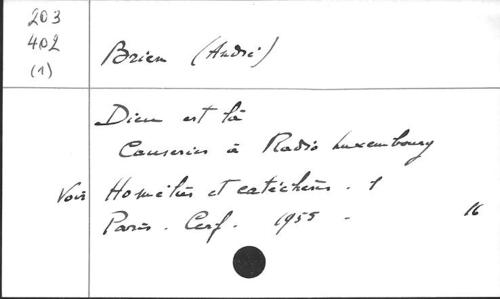 203
402
(1)
Brien (André)
Dieu est là
Causeries à Radio Luxembourg
Voir Homélies et catéchèses . 1
Paris . Cerf . 1955 .
16